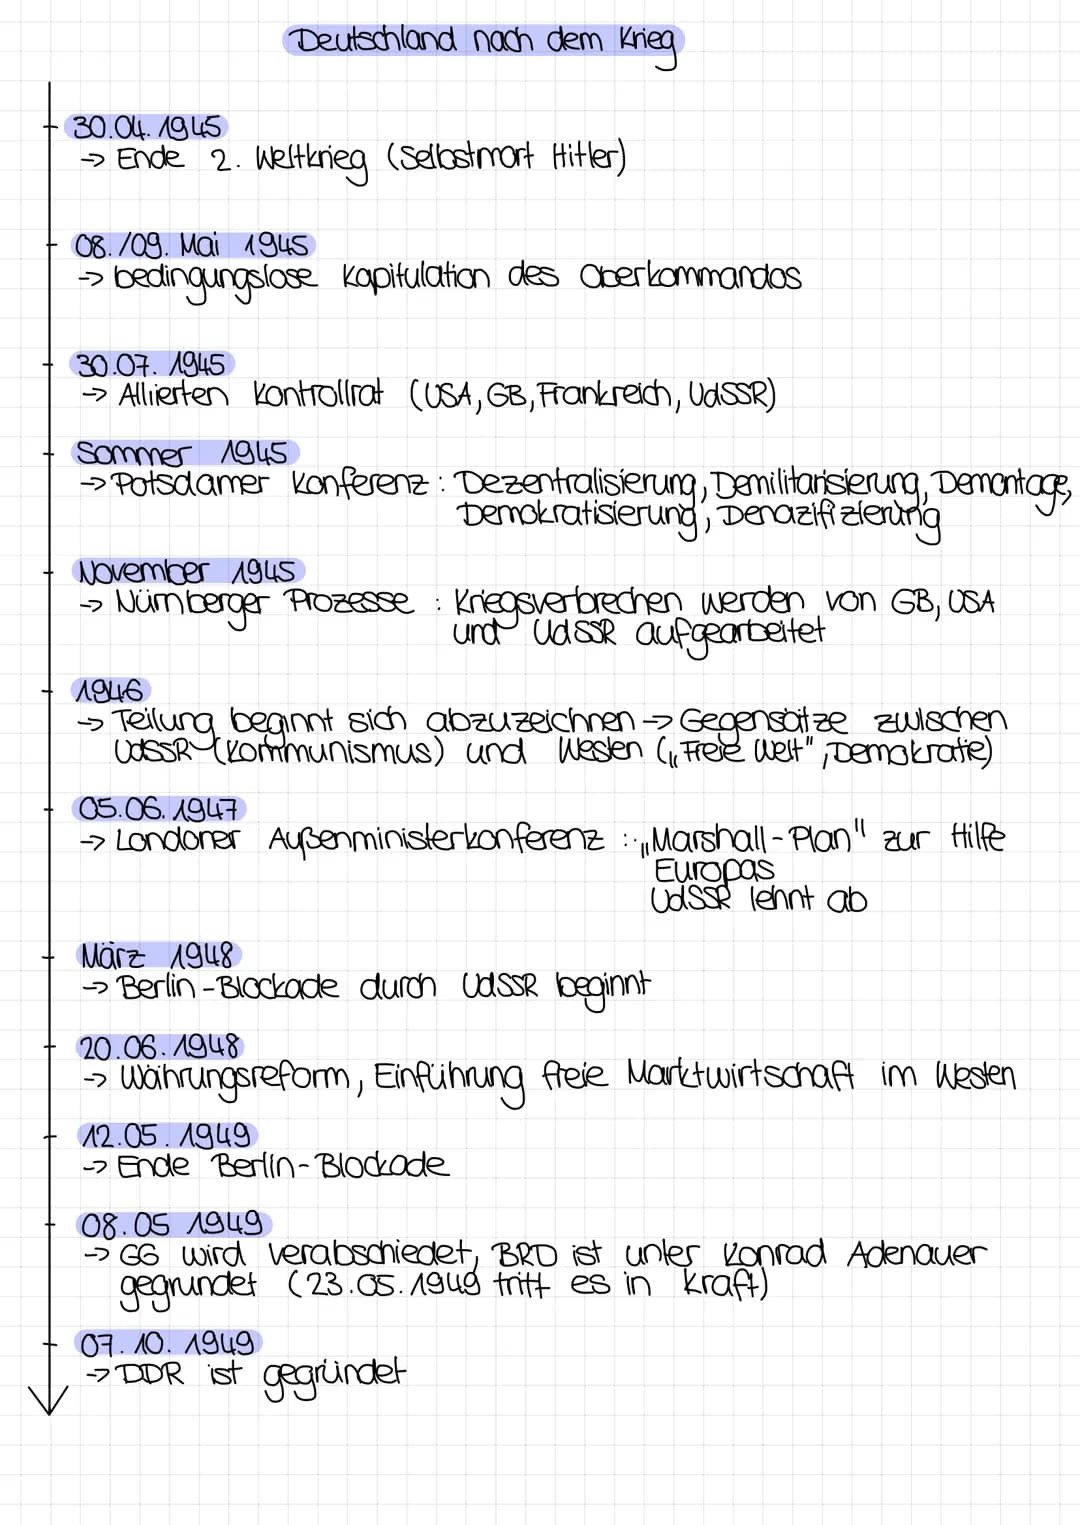 Deutschland nach dem Krieg
30.04.1945
→ Ende 2. Weltkrieg (Selbstmort Hitler)
08./09. Mai 1945
→ bedingungslose Kapitulation des Oberkommandos
30.07.1945
→ Alliierten Kontrollrat (USA, GB, Frankreich, UdSSR)
Sommer 1945
→ Potsdamer Konferenz: Dezentralisierung, Demilitarisierung, Demontage,
Demokratisierung, Denazifizierung
November 1945
→ Nürnberger Prozesse : Kriegsverbrechen werden von GB, USA
und UdSSR aufgearbeitet
1946
→ Teilung beginnt sich abzuzeichnen → Gegensätze zwischen
UdSSR (Kommunismus) und Westen („Freie Welt", Demokratie)
05.06.1947
→ Londoner Außenministerkonferenz : „Marshall-Plan" zur Hilfe
Europas
UdSSR lehnt ab
März 1948
→ Berlin-Blockade durch UdSSR beginnt
20.06.1948
→ Währungsreform, Einführung freie Marktwirtschaft im Westen
12.05.1949
→ Ende Berlin-Blockade
08.05 1949
→ GG wird verabschiedet, BRD ist unter Konrad Adenauer
gegründet (23.05.1949 tritt es in Kraft)
07.10.1949
→ DDR ist gegründet